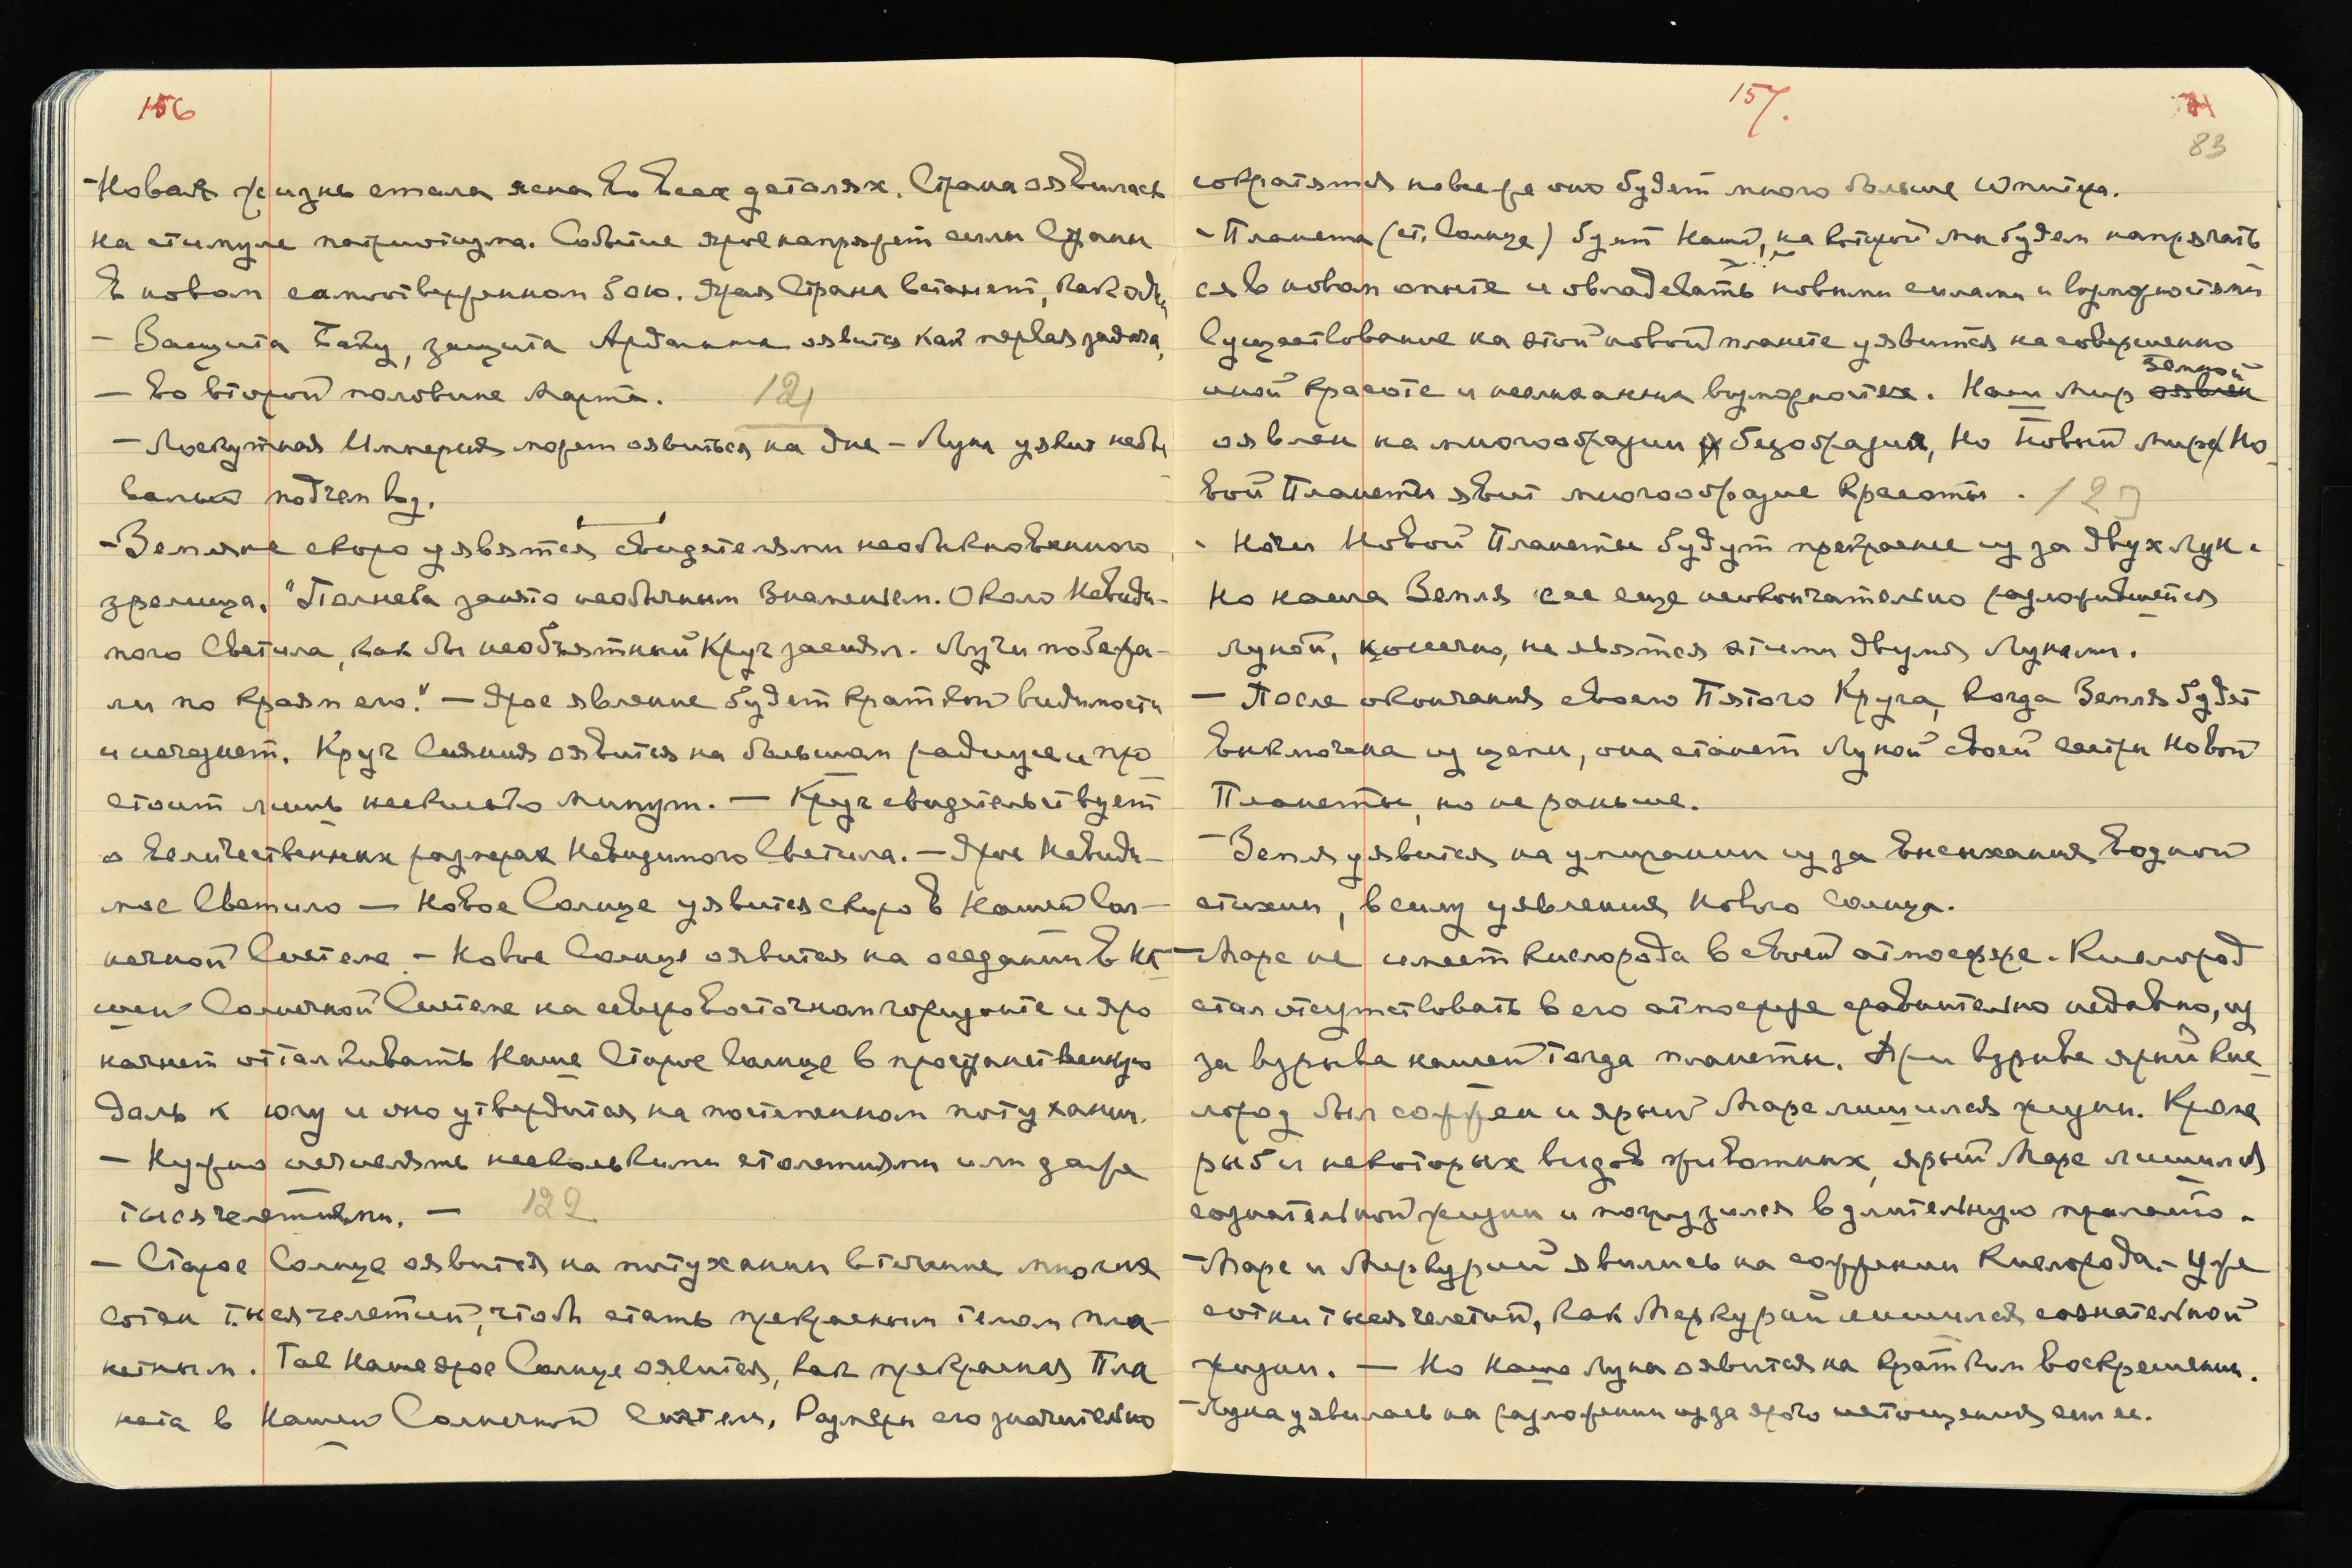 156
- Новая жизнь стала ясна во всех деталях. Страна оявилась
на стимуле патриотизма. Событие ярое напряжет силы Страны
в новом самоотверженном бою. Ярая Страна встанет, как один
- Защита Баку, защита Ардагана оявится как первая задача,
- Во второй половине Марта. 121
- Лоскутная Империя может оявиться на дне - Луна уявит небы
валый подъем вод.
- Земляне скоро уявятся свидетелями необыкновенного
зрелища. "Полнеба занято необычным Знаменьем. Около Невиди-
мого Светила, как бы необъятный Круг засиял. Лучи побежа-
ли по краям его." - Ярое явление будет краткой видимости
и исчезнет. Круг Сияния оявится на большом радиусе и про
стоит лишь несколько минут. - Круг свидетельствует
о величественных размерах Невидимого Светила. - Ярое Невиди-
мое Светило - Новое Солнце уявится скоро в Нашей Сол-
нечной Системе - Новое Солнце оявится на оседании в На
шей Солнечной Системе на северовосточном горизонте и яро
начнет отталкивать Наше Старое Солнце в пространственную
даль к югу и оно утвердится на постепенном потухании.
- Нужно исчислять несколькими столетиями или даже
тысячелетиями. - 122
- Старое Солнце оявится на потухании в течение многих
сотен тысячелетий, чтобы стать прекрасным телом пла-
нетным. Так Наше ярое Солнце оявится, как прекрасная Пла
нета в Нашей Солнечной Системе, Размеры его значительно
157.
83
сократятся но все же оно будет много больше Юпитера.
- Планета (ст. Солнце) будет Нашей, на которой мы будем напрягать
ся в новом опыте и овладевать новыми силами и возможностями
Существование на этой новой планете уявится на совершенно
земной
иной красоте и несказанных возможностях. Наш Мир оявлен
оявлен на многообразии безобразия, но Новый Мир Но
вой Планеты явит многообразие Красоты. 123
- Ночи Новой Планеты будут прекрасные из за двух Лун.
Но наша Земля с ее еще неокончательно разложившейся
Луной, конечно, не явятся этими двумя Лунами.
- После окончания своего Пятого Круга, когда Земля будет
выключена из цепи, она станет Луной своей сестры Новой
Планеты, но не раньше.
- Земля уявится на умирании из за высыхания водной
стихии, в силу уявления Нового Солнца.
- Марс не имеет кислорода в своей атмосфере. Кислород
стал отсутствовать в его атмосфере сравнительно недавно, из
за взрыва нашей тогда планеты. При взрыве ярый кис
лород был сожжен и ярый Марс лишился жизни. Кроме
рыб и некоторых видов животных, ярый Марс лишился
сознательной жизни и погрузился в длительную пралайю.
- Марс и Меркурий явились на сожжении Кислорода. - Уже
сотни тысячелетий, как Меркурий лишился сознательной
жизни. - Но наша Луна оявится на кратком воскрешении.
- Луна уявилась на разложении из за ярого истощения сил ее.